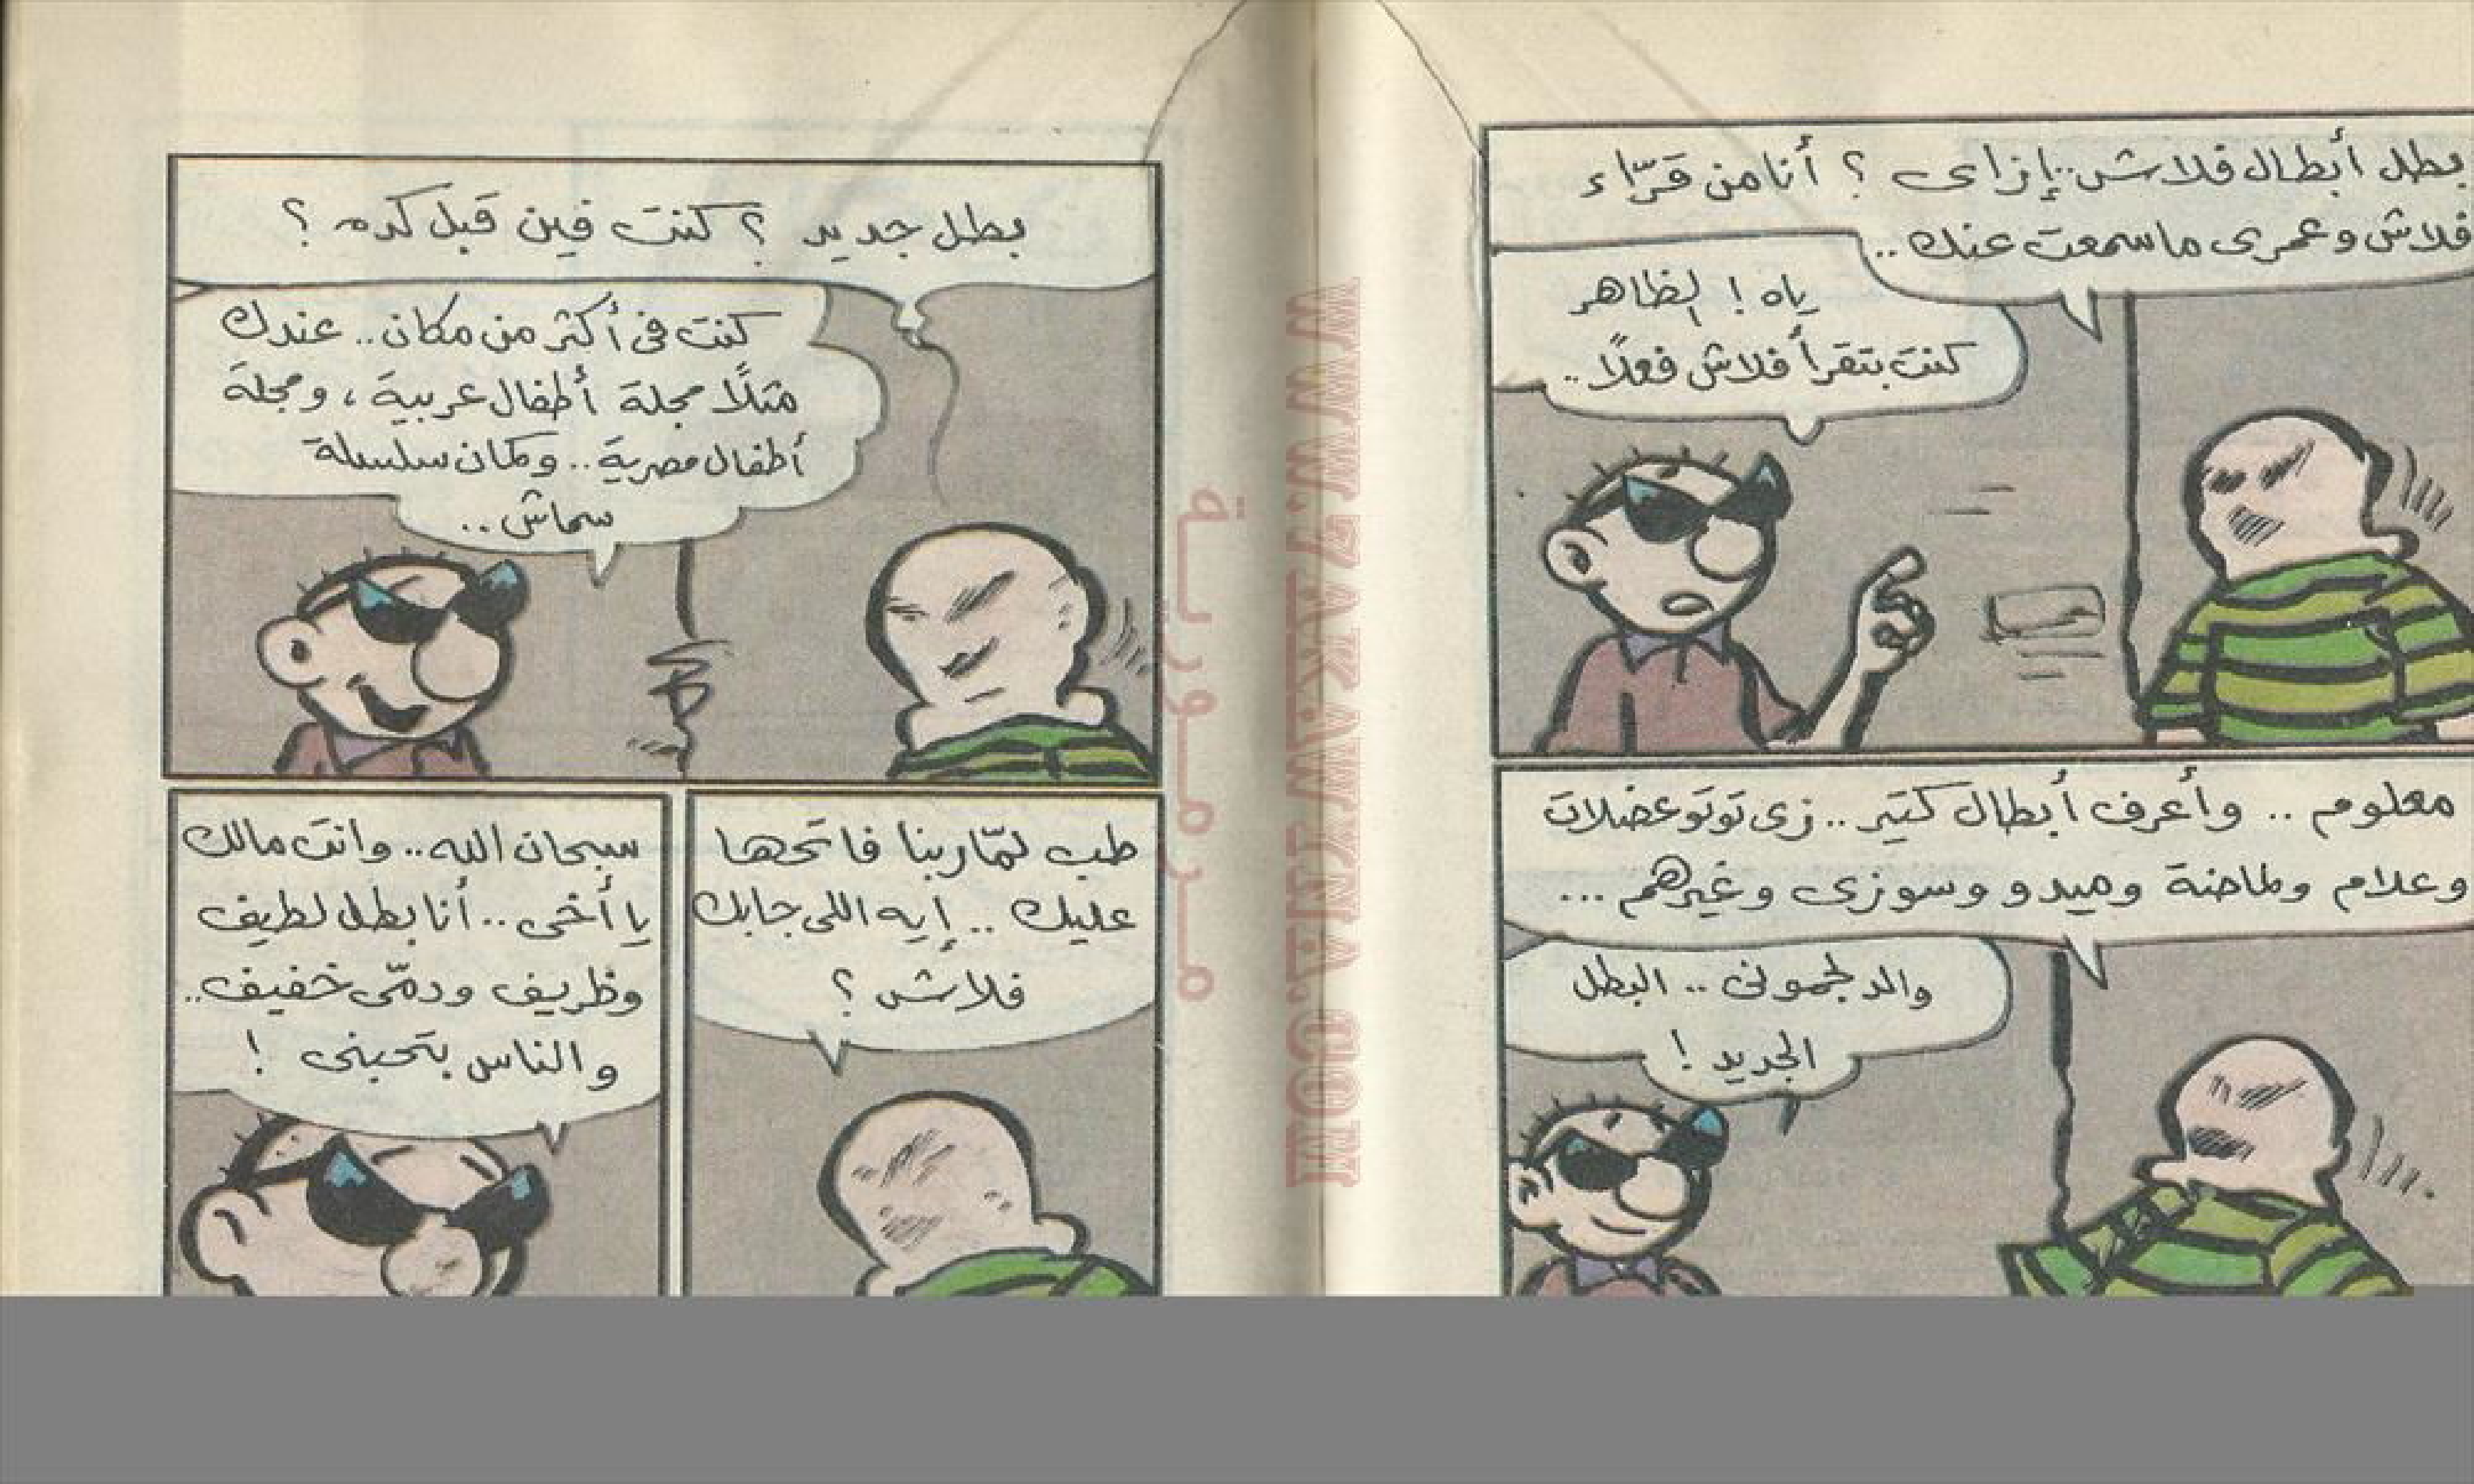 بطل أبطال فلاش.. إزاى ؟ أنا من قرّاء
فلاش وعمرى ما سمعت عنك..
ياه ! الظاهر
كنت بتقرأ فلاش فعلاً..
معلوم .. وأعرف أبطال كتير.. زى توتو عضلات
وعلام ولماضة وميدو وسوزى وغيرهم ...
والد لجمونى .. البطل
الجديد !
بطل جديد ؟ كنت فين قبل كده ؟
كنت فى أكثر من مكان.. عندك
مثلاً مجلة أطفال عربية ، ومجلة
أطفال مصرية.. وكمان سلسلة
سماش..
طب لمّا ربنا فاتحها
عليك .. إيه اللى جابك
فلاش ؟
سبحان الله.. وانت مالك
يا أخى.. أنا بطل لطيف
وظريف ودمّى خفيف..
والناس بتحبنى !
مرمورية
WWW.7AKAWINA.COM